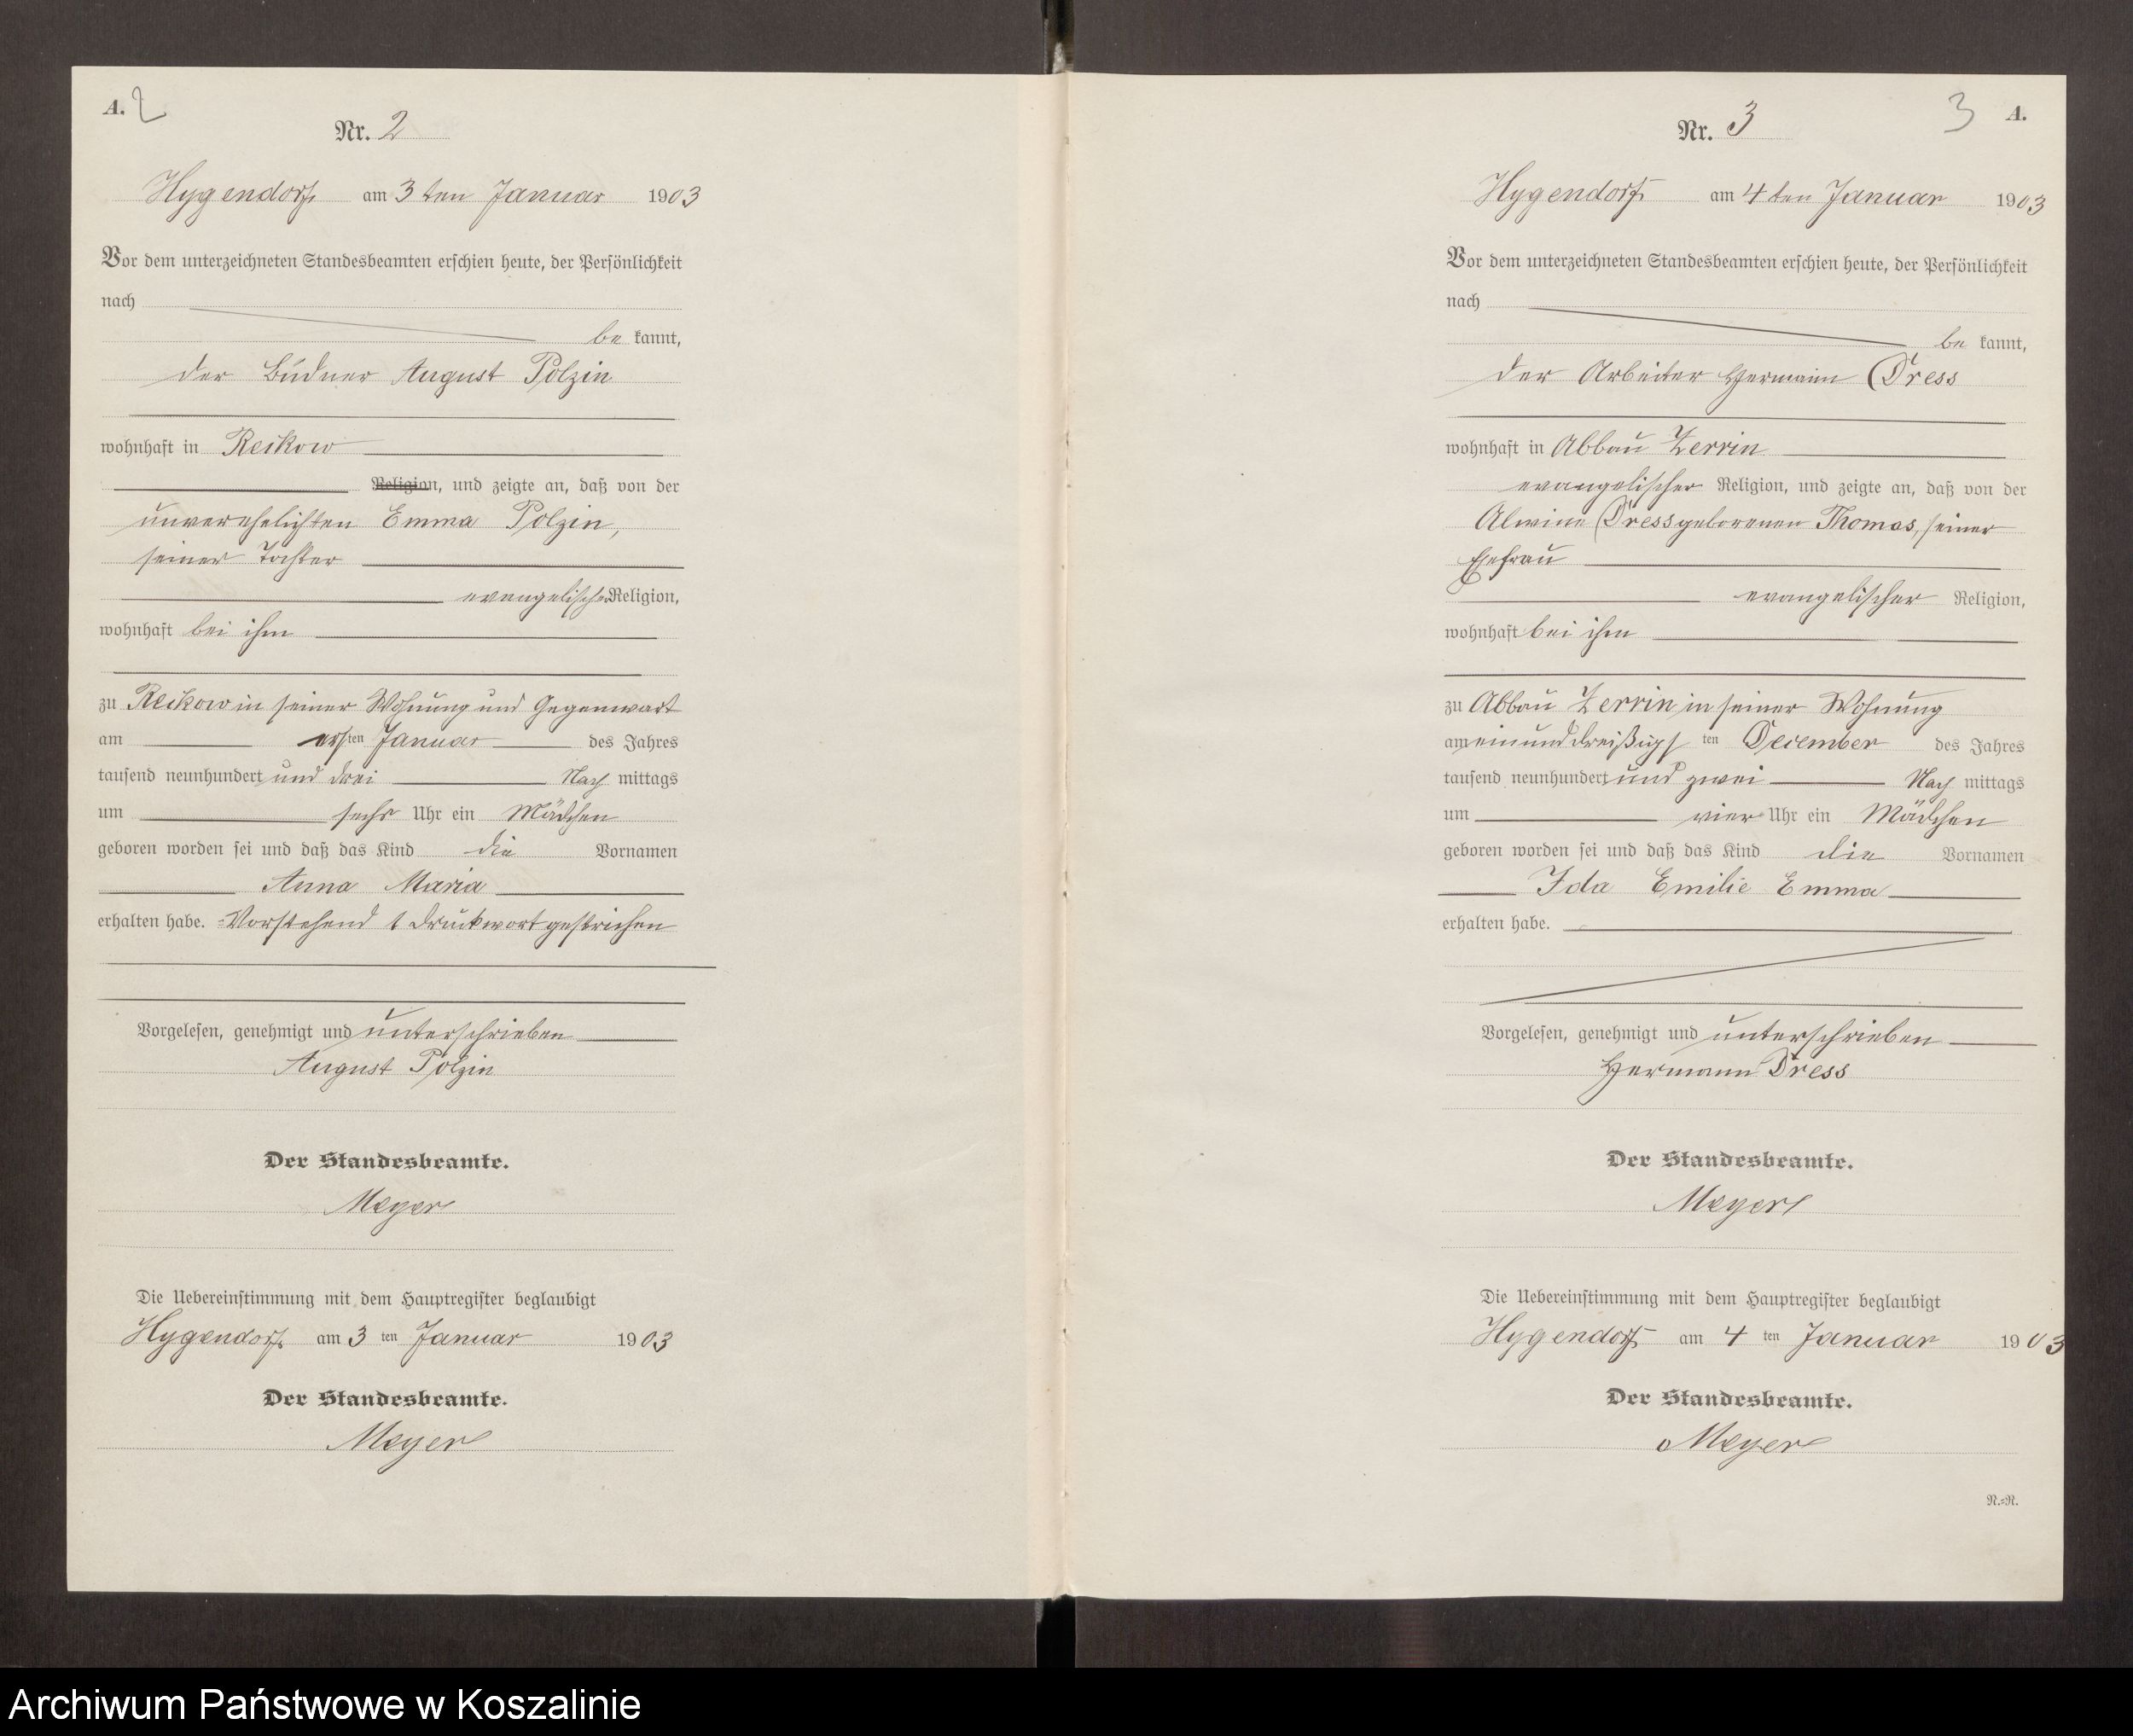 A. 2
Nr. 2
Hygendorf am 3 ten Januar 1903
Vor dem unterzeichneten Standesbeamten erschien heute, der Persönlichkeit
nach
be kannt,
der Büdner August Polzin
wohnhaft in Reikow
Religion, und zeigte an, daß von der
unverehelichten Emma Polzin,
seiner Tochter
evangelischer Religion,
wohnhaft bei ihm
zu Reikow in seiner Wohnung und Gegenwart
am ersten Januar des Jahres
tausend neunhundert und drei Nach mittags
um sechs Uhr ein Mädchen
geboren worden sei und daß das Kind die Vornamen
Anna Maria
erhalten habe. Vorstehend 1 Druckwort gestrichen
Vorgelesen, genehmigt und unterschrieben
August Polzin
Der Standesbeamte.
Meyer
Die Uebereinstimmung mit dem Hauptregister beglaubigt
Hygendorf am 3 ten Januar 1903
Der Standesbeamte.
Meyer
3 A.
Nr. 3
Hygendorf am 4 ten Januar 1903
Vor dem unterzeichneten Standesbeamten erschien heute, der Persönlichkeit
nach
be kannt,
der Arbeiter Hermann Dress
wohnhaft in Abbau Zerrin
evangelischer Religion, und zeigte an, daß von der
Alwine Dress geborenen Thomas, seiner
Ehefrau
evangelischer Religion,
wohnhaft bei ihm
zu Abbau Zerrin in seiner Wohnung
am einunddreißigsten December des Jahres
tausend neunhundert und zwei Nach mittags
um vier Uhr ein Mädchen
geboren worden sei und daß das Kind die Vornamen
Ida Emilie Emma
erhalten habe.
Vorgelesen, genehmigt und unterschrieben
Hermann Dress
Der Standesbeamte.
Meyer
Die Uebereinstimmung mit dem Hauptregister beglaubigt
Hygendorf am 4 ten Januar 1903
Der Standesbeamte.
Meyer
N.=N.
Archiwum Państwowe w Koszalinie